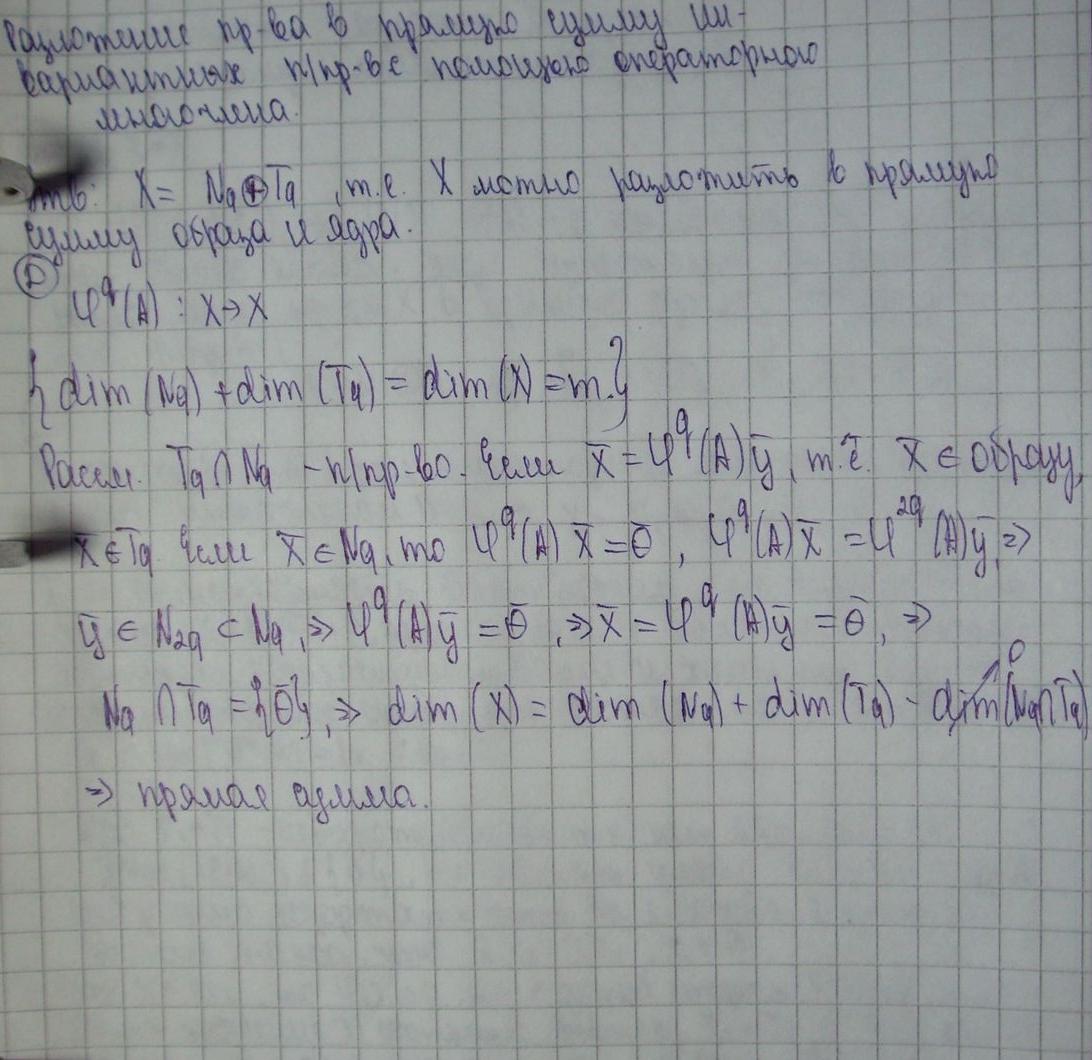 Разложение пр-ва в прямую сумму ин-
вариантных п/пр-в с помощью операторного
многочлена.
Утв: X = Nq ⊕ Tq, т.е. X можно разложить в прямую
сумму образа и ядра.
Ⓓ
φ^q(A) : X → X
{ dim (Nq) + dim (Tq) = dim (X) = m. }
Рассм. Tq ∩ Nq – п/пр-во. Если x̄ = φ^q(A)ȳ, т.е. x̄ ∈ образу,
x̄ ∈ Tq. Если x̄ ∈ Nq, то φ^q(A) x̄ = θ̄, φ^q(A)x̄ = φ^2q(A)ȳ, ⇒
ȳ ∈ N2q ⊂ Nq, ⇒ φ^q(A)ȳ = θ̄, ⇒ x̄ = φ^q(A)ȳ = θ̄, ⇒
Nq ∩ Tq = {θ̄}, ⇒ dim (X) = dim (Nq) + dim (Tq) - dim (Nq ∩ Tq) 0
⇒ прямая сумма.